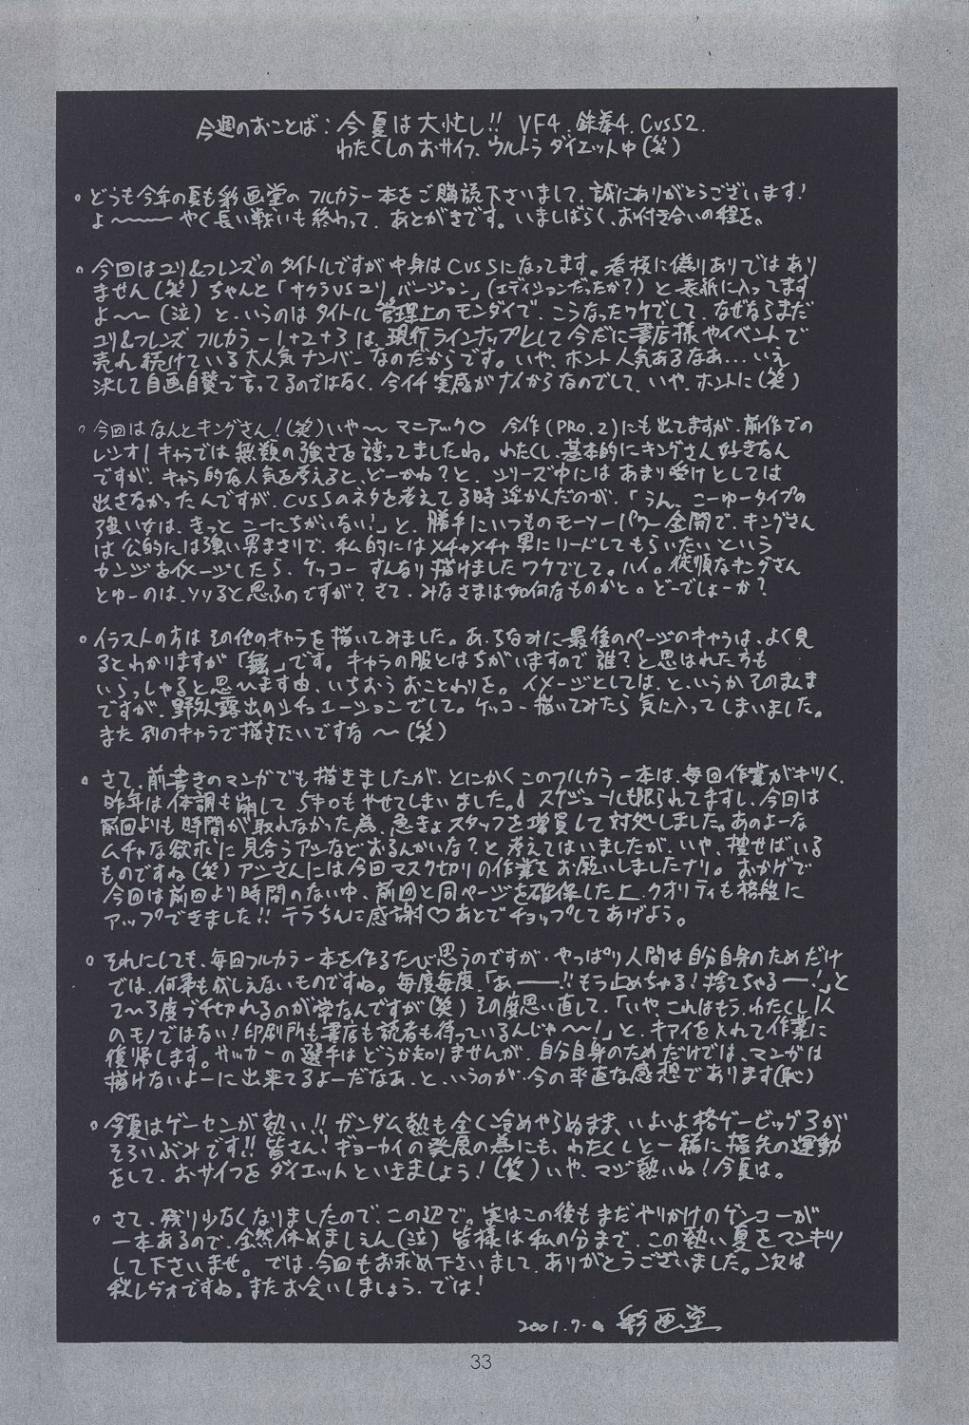 今週のおことば：今夏は大忙し!! VF4、鉄拳4、CvSS2.
わたくしのおサイフ、ウルトラダイエット中(笑)
どうも今年の夏も彩画堂のフルカラー本をご購読下さいまして、誠にありがとうございます!
よ〜〜〜やく長い戦いも終わって、あとがきです。いましばらく、お付き合いの程を。
今回はユリ&フレンズのタイトルですが中身はCVSSになってます。看板に偽りありではあり
ません(笑)ちゃんと「サクラVSユリ バージョン」(エディションだったか?)と表紙に入ってます
よ〜〜(泣)というのはタイトル管理上のモンダイで、こうなったワケでして、なぜならまだ
ユリ&フレンズ フルカラー1+2+3は、現行ラインナップとして今だに書店様やイベントで
売れ続けている大人気ナンバーなのだからです。いや、ホント人気あるなあ…いえ
決して自画自賛で言ってるのではなく、今イチ実感がナイからなのでして、いや、ホントに(笑)
今回はなんとキングさん!(笑)いや〜マニアック♡ 今作(PRO.2)にも出てますが、前作での
レシオ1キャラでは無類の強さを誇ってましたね。わたくし、基本的にキングさん好きなん
ですが、キャラ的な人気を考えると、どーかね?と、シリーズ中にはあまり受けとしては
出さなかったんですが、CVSSのネタを考えてる時浮かんだのが、「うん、こーゆータイプの
強い女は、きっとこーにちがいない!」と、勝手にいつものモーソーパワー全開で、キングさん
は公的には強い男まさりで、私的にはメチャメチャ男にリードしてもらいたいという
カンジをイメージしたら、ケッコーすんなり描けましたワケでして。ハイ。従順なキングさん
とゆーのは、ソソると思ふのですが?さて、みなさまは如何なものかと。どーでしょーか?
イラストの方はその他のキャラを描いてみました。あ、ちなみに最後のページのキャラは、よく見
るとわかりますが「舞」です。キャラの服とはちがいますので誰?と思はれた方も
いらっしゃると思ひます由、いちおうおことわりを。イメージとしては、と、いうかそのまんま
ですが、野外露出のシチュエーションでして。ケッコー描いてみたら気に入ってしまいました。
また別のキャラで描きたいですな〜(笑)
さて、前書きのマンガでも描きましたが、とにかくこのフルカラー本は、毎回作業がキツく、
昨年は体調も崩して5キロもやせてしまいました。スケジュールも限られてますし、今回は
前回よりも時間が取れなかった為、急きょスタッフを増員して対処しました。あのよーな
ムチャな欲求に見合うアシなどおるんかいな?と考えてはいましたが、いや、捜せばいる
ものですね(笑)アシさんには今回マスク切りの作業をお願いしましたナリ。おかげで
今回は前回より時間のない中、前回と同ページを確保した上、クオリティも格段に
アップできました!!テラちんに感謝♡あとでチョップしてあげよう。
それにしても、毎回フルカラー本を作るたび思うのですが、やっぱり人間は自分自身のためだけ
では、何事も成しえないものですね。毎度毎度、「あ———!!もう止めちゃる!捨てちゃる——!」と
2〜3度ブチ切れるのが常なんですが(笑)その度思い直して、「いや、これはもう、わたくし1人
のモノではない!印刷所も書店も読者も待っているんじゃ〜〜!」と、キアイを入れて作業に
復帰します。サッカーの選手はどうか知りませんが、自分自身のためだけでは、マンガは
描けないよーに出来てるよーだなあ、と、いうのが、今の率直な感想であります(恥)
今夏はゲーセンが熱い!!ガンダム熱も全く冷めやらぬまま、いよいよ格ゲービッグ3が
そろいぶみです!!皆さん!ギョーカイの発展の為にも、わたくしと一緒に指先の運動
をして、おサイフをダイエットといきましょう!(笑)いや、マジ熱いね!今夏は。
さて、残り少なくなりましたので、この辺で。実はこの後もまだやりかけのゲンコーが
一本あるので、全然休めましぇん(泣)皆様は私の分まで、この熱い夏をマンキツ
して下さいませ。では、今回もお求め下さいまして、ありがとうございました。次は
秋レヴォですね。またお会いしましょう、では!
2001.7. 彩画堂
33